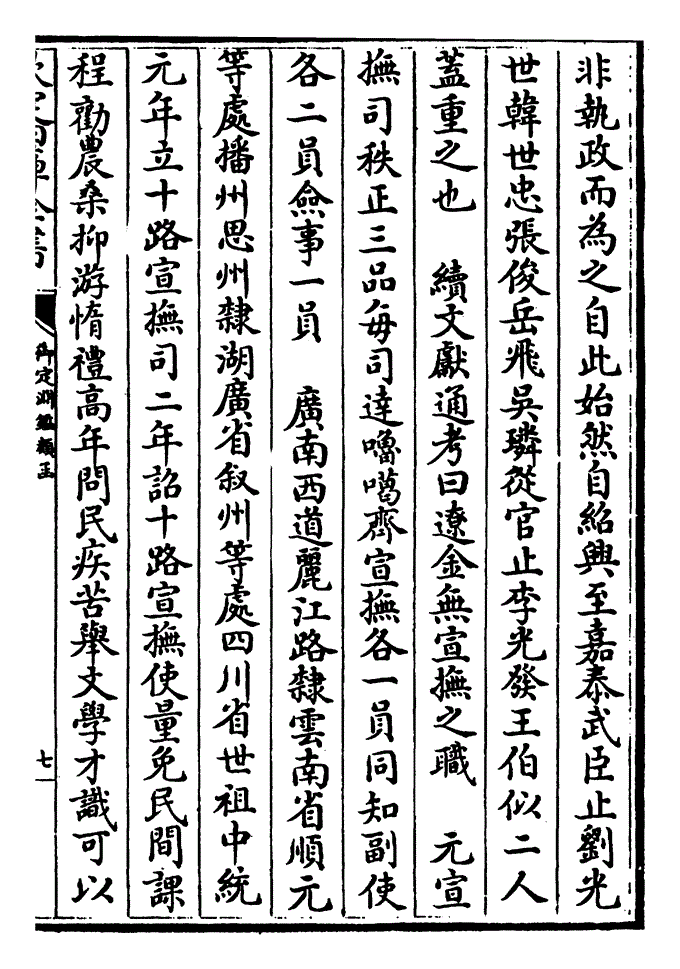 非執政而為之自此始然自紹興至嘉泰武臣止劉光
世韓世忠張俊岳飛吳璘從官止李光發王伯似二人
蓋重之也　續文獻通考曰遼金無宣撫之職　元宣
撫司秩正三品每司達嚕噶齊宣撫各一員同知副使
各二員僉事一員　廣南西道麗江路隸雲南省順元
等處播州思州隸湖廣省叙州等處四川省世祖中統
元年立十路宣撫司二年詔十路宣撫使量免民間課
程勸農桑抑游惰禮高年問民疾苦舉文學才識可以
欽定四庫全書
御定淵鑑類函
七